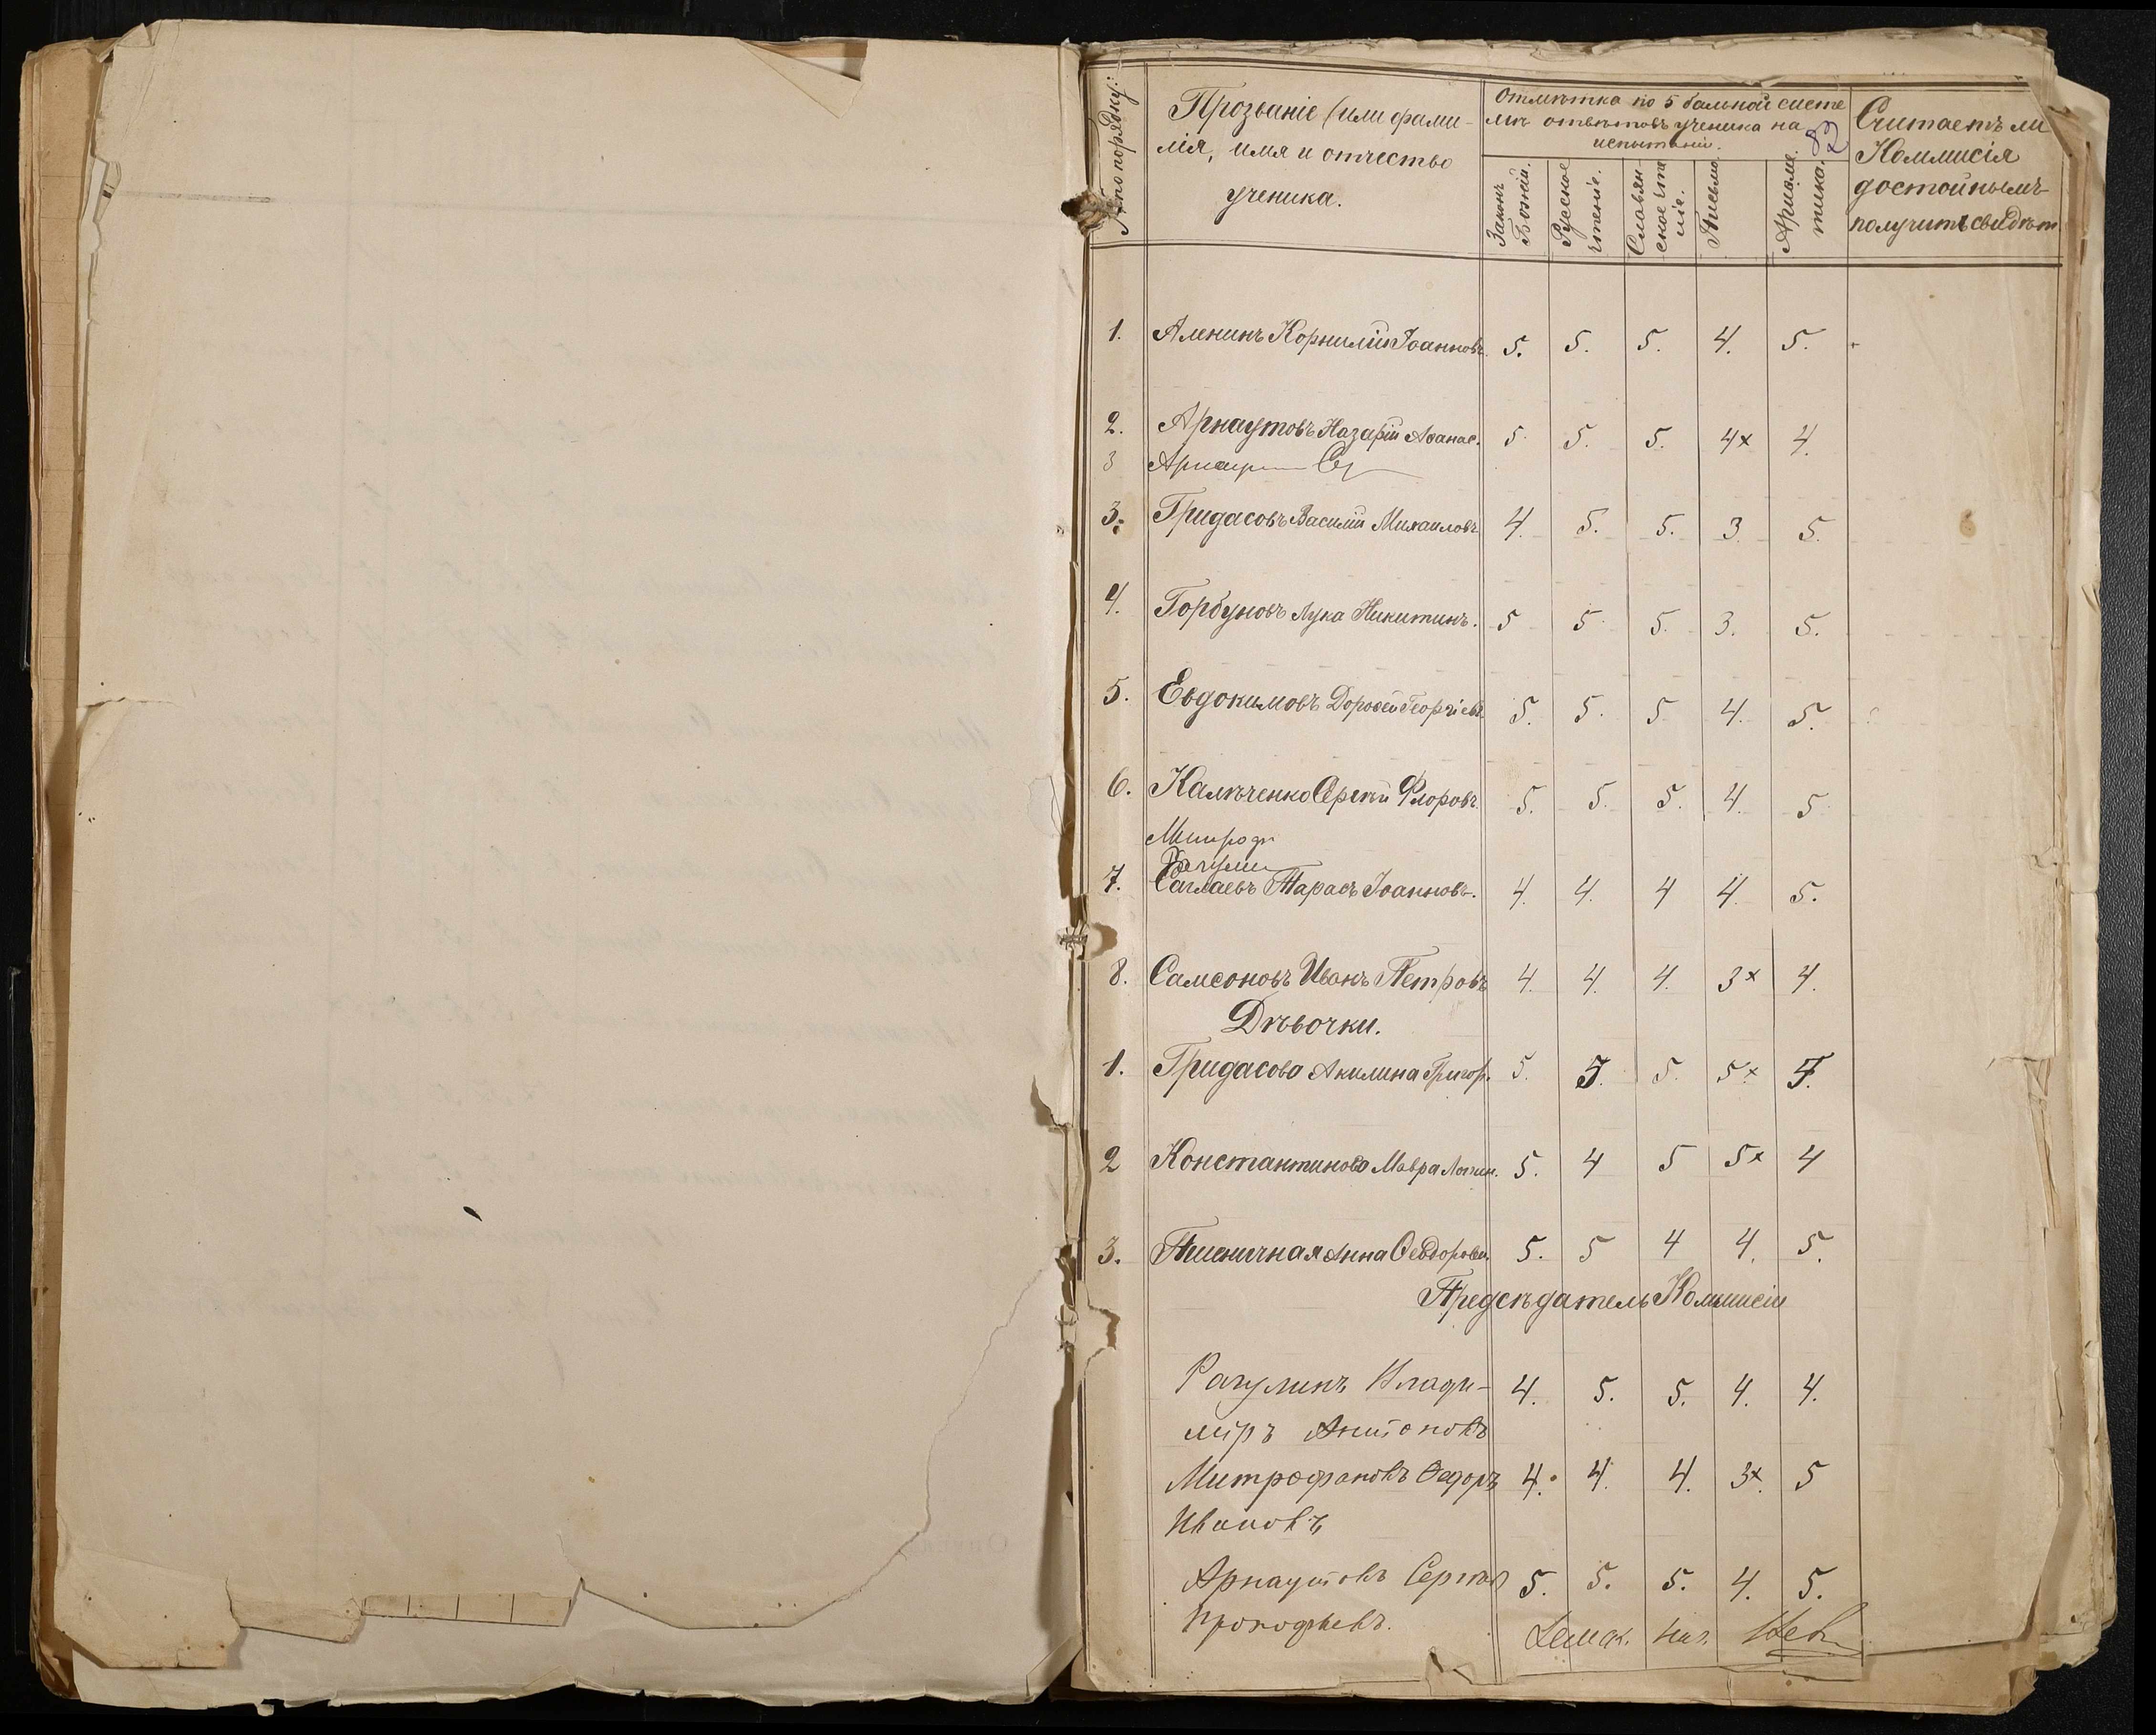 № по порядку:
Прозваніе (или фами-
лія, имя и отчество
ученика.
Отмѣтка по 5 бальной систе
мѣ отвѣтовъ ученика на
испытаніи.
Законъ
Божій.
Русское
чтеніе.
Славян-
ское чте
ніе.
Письмо.
Ариөме
тика.
23
Считаетъ ли
Коммисія
достойнымъ
получить свидѣт
1. Аленинъ Корнилій Іоанновъ. 5. 5. 5. 4. 5.
2. Арнаутовъ Назарій Аөанас. 5. 5. 5. 4x 4.
3
3. Гридасовъ Василій Михаиловъ 4. 5. 5. 3. 5.
4. Горбуновъ Лука Никитинъ. 5 5. 5. 3. 5.
5. Евдокимовъ Дороөей Георгіевъ. 5. 5. 5 4. 5.
6. Калѣченко Сергѣй Флоровъ. 5. 5. 5. 4. 5
Митроф
Рагулин
7. Саглаевъ Тарасъ Іоанновъ. 4. 4. 4 4. 5.
8. Самсоновъ Иванъ Петровъ 4. 4. 4. 3x 4.
Дѣвочки.
1. Гридасова Акилина Григор. 5. 5. 5. 5x 5.
2 Константинова Мавра 5. 4 5 5x 4
3. Пшеничная Анна Өеодоровн. 5. 5 4 4. 5.
Предсѣдатель Коммисіи
Рагулинъ Влади- 4. 5. 5. 4. 4.
міръ Антоновъ
Митрофановъ Өедоръ 4. 4. 4. 3x. 5
Ивановъ
Арнаутовъ Сергѣй 5. 5. 5. 4. 5.
Прокофьевъ.